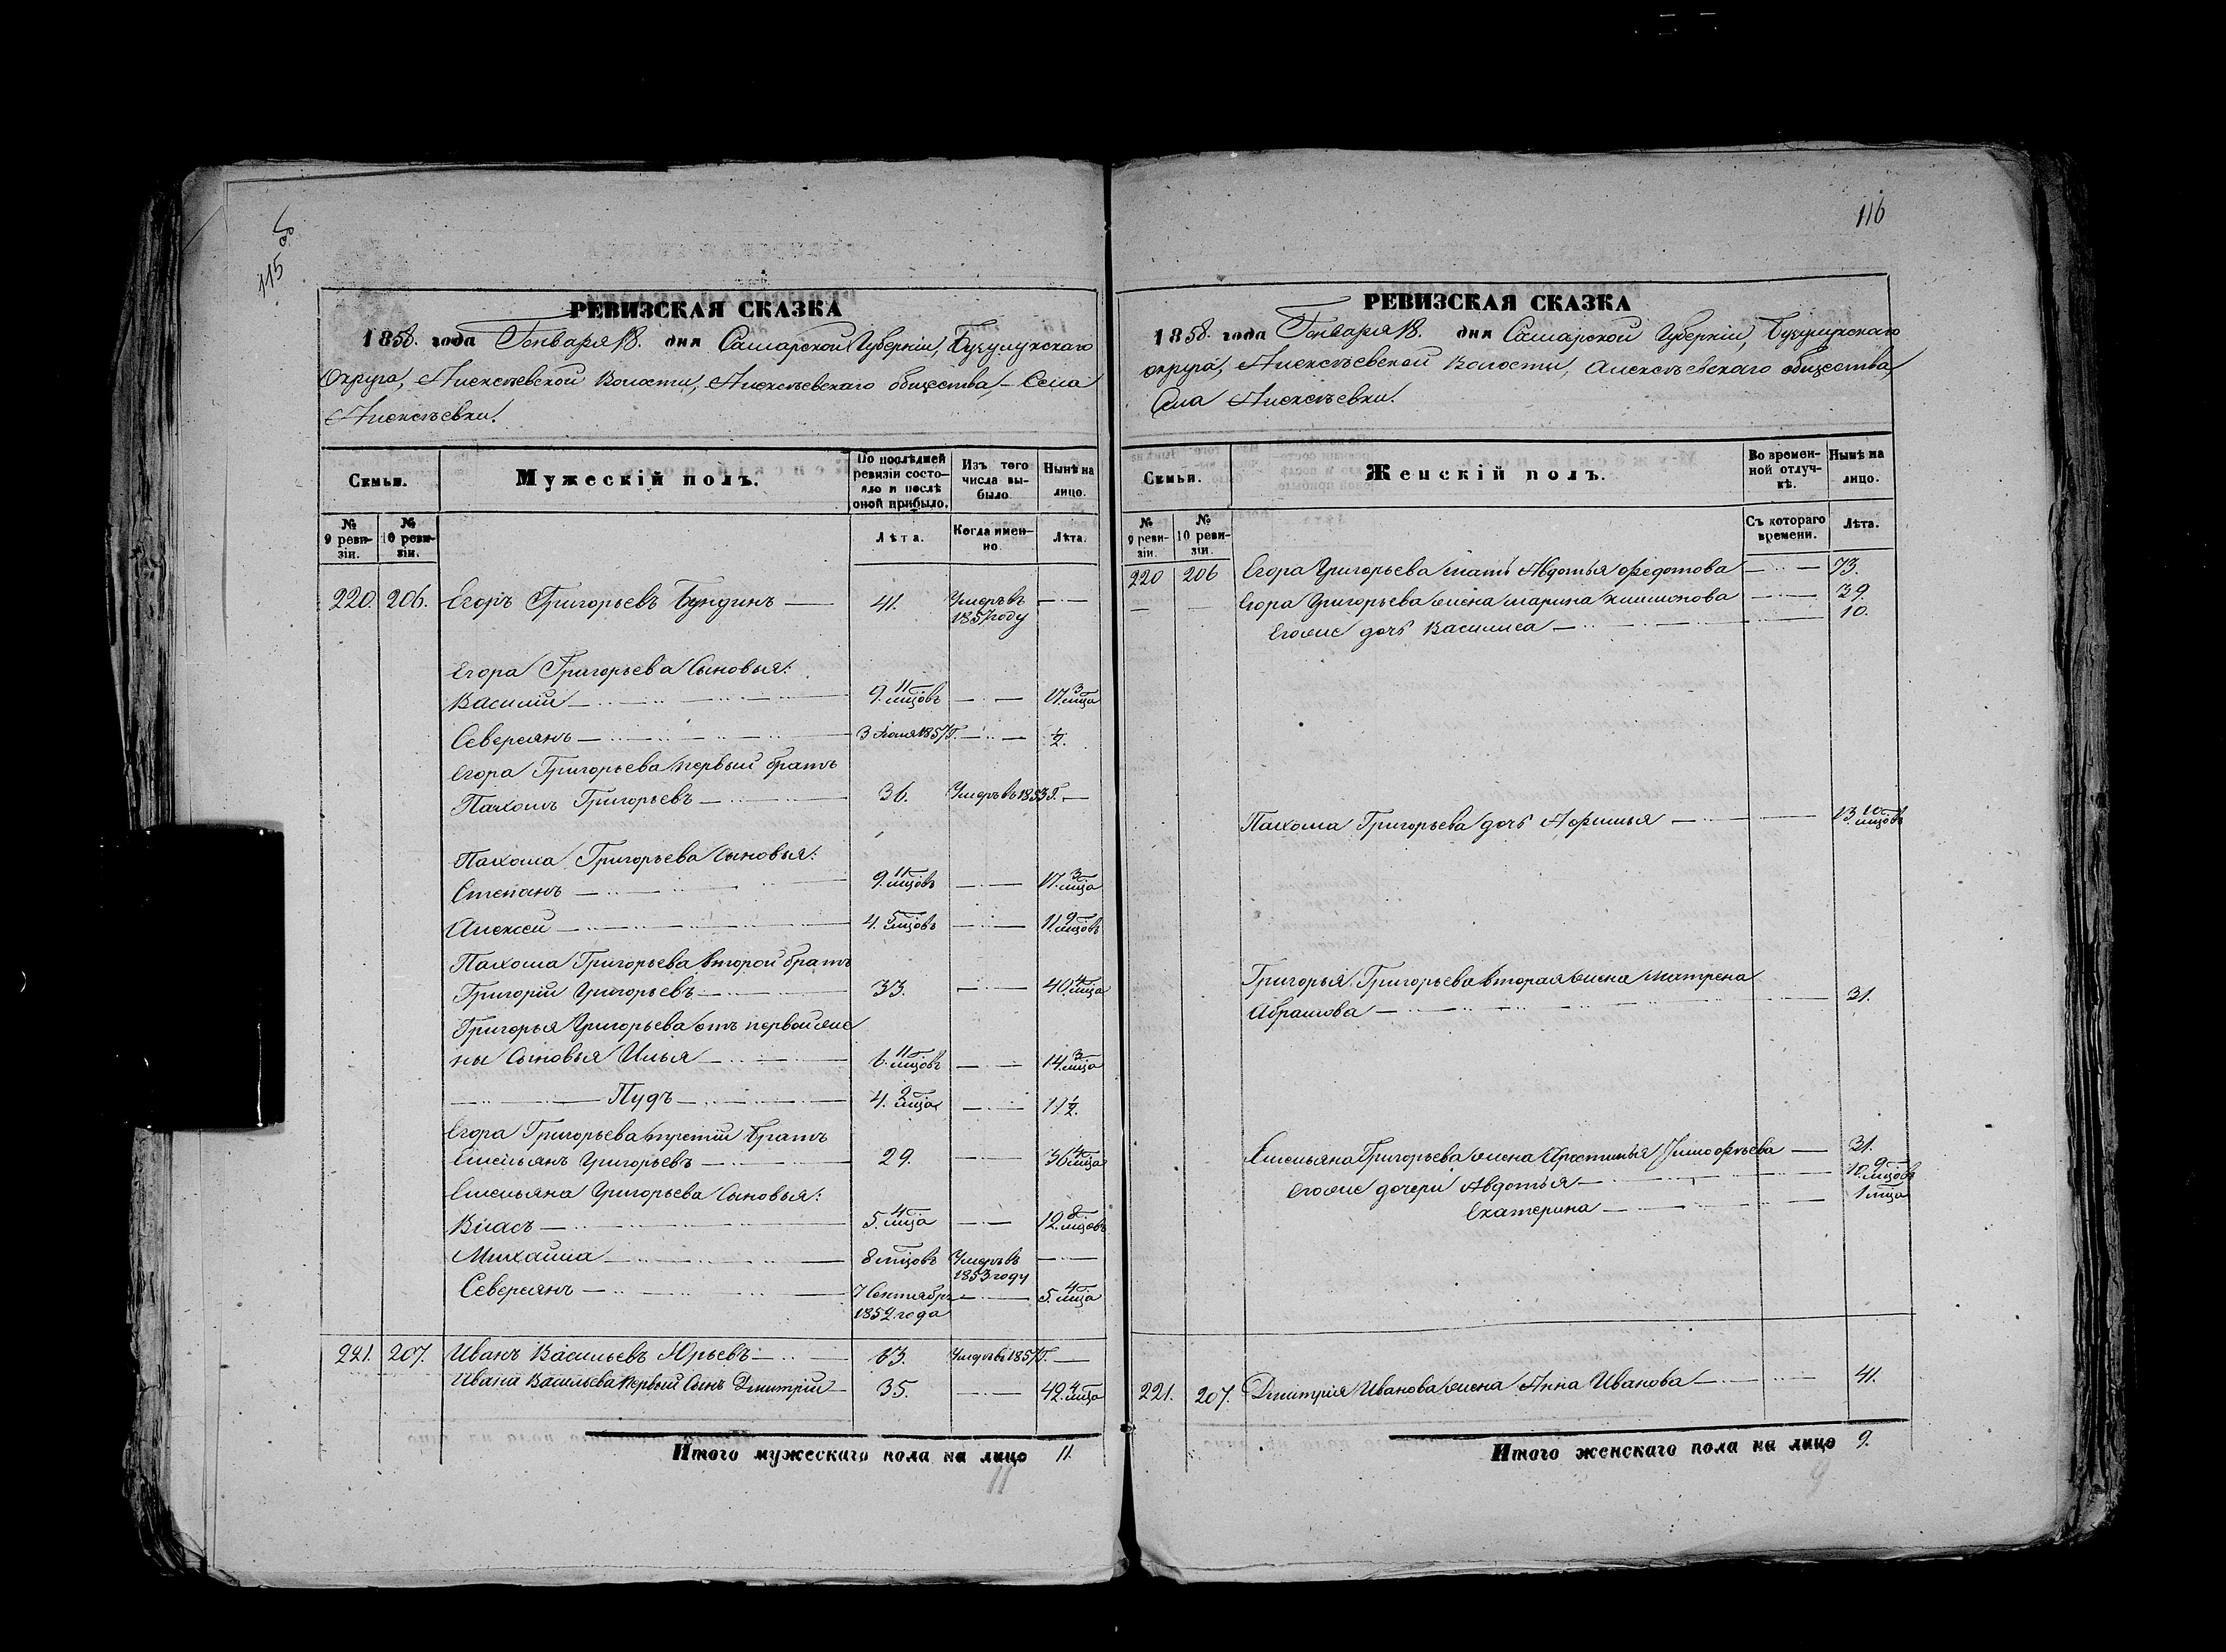 115 об
РЕВИЗСКАЯ СКАЗКА
1858. года Генваря 18. дня Самарской Губерніи, Бузулукскаго
Округа, Алексѣевской Волости, Алексѣевскаго общества, Села
Алексѣевки.
Семьи. Мужескій полъ. По послѣдней ревизіи состояло и послѣ оной прибыло. Изъ того числа выбыло Нынѣ на лицо.
№ 9 ревизіи. № 10 ревизіи. Лѣта. Когда именно Лѣта.
220. 206. Егоръ Григорьевъ Бундинъ 41. Умеръ въ
1857 году
Егора Григорьева Сыновья:
Василій 9. 11 мцовъ 17. 3 мца
Северьянъ 3 1857 Г. ½.
Егора Григорьева первый братъ
Пахомъ Григорьевъ 36. Умеръ въ 1853 Г.
Пахома Григорьева Сыновья:
Степанъ 9. 11 мцовъ 17. 3 мца
Алексей 4. 5 мцовъ 11. 9 мцовъ
Пахома Григорьева второй братъ
Григорій Григорьевъ 33. 40. 4 мца
Григорья Григорьева отъ первой же
ны Сыновья Илья 6. 11 мцовъ 14. 3 мца
Пудъ 4. 2 мца 11 ½.
Егора Григорьева третій братъ
Емельянъ Григорьевъ 29. 36. 4 мца
Емельяна Григорьева Сыновья:
Власъ 5. 4 мца 12. 8 мцовъ
Михайла 8 мцовъ Умеръ въ
1853 году
Северьянъ 7 Сентября 5. 4 мца
1852 года
221. 207. Иванъ Васильевъ Юрьевъ 63. Умеръ въ 1857 Г.
Ивана Васильева первый Сынъ Дмитрій 35. 42. 4 мца
Итого мужескаго пола на лицо 11.
11
116
РЕВИЗСКАЯ СКАЗКА
1858. года Генваря 18. дня Самарской Губерніи, Бузулукскаго
округа, Алексѣевской Волости, Алексѣевскаго общества,
Села Алексѣевки.
Семьи. Женскій полъ. Во временной отлучкѣ. Нынѣ на лицо.
№ 9 ревизіи. № 10 ревизіи. Съ котораго времени. Лѣта.
220 206 Егора Григорьева мать Авдотья Федотова 73.
Егора Григорьева жена Марина 39.
Его же дочь Василиса 10.
Пахома Григорьева дочь Афимья 13. 10 мцовъ
Григорья Григорьева вторая жена Матрена
Абрамова 31.
Емельяна Григорьева жена Тимофѣева 31.
Его же дочери Авдотья 10. 9 мцовъ
Екатерина 1 мца
221. 207. Дмитрія Иванова жена Анна Иванова 41.
Итого женскаго пола на лицо 9.
9